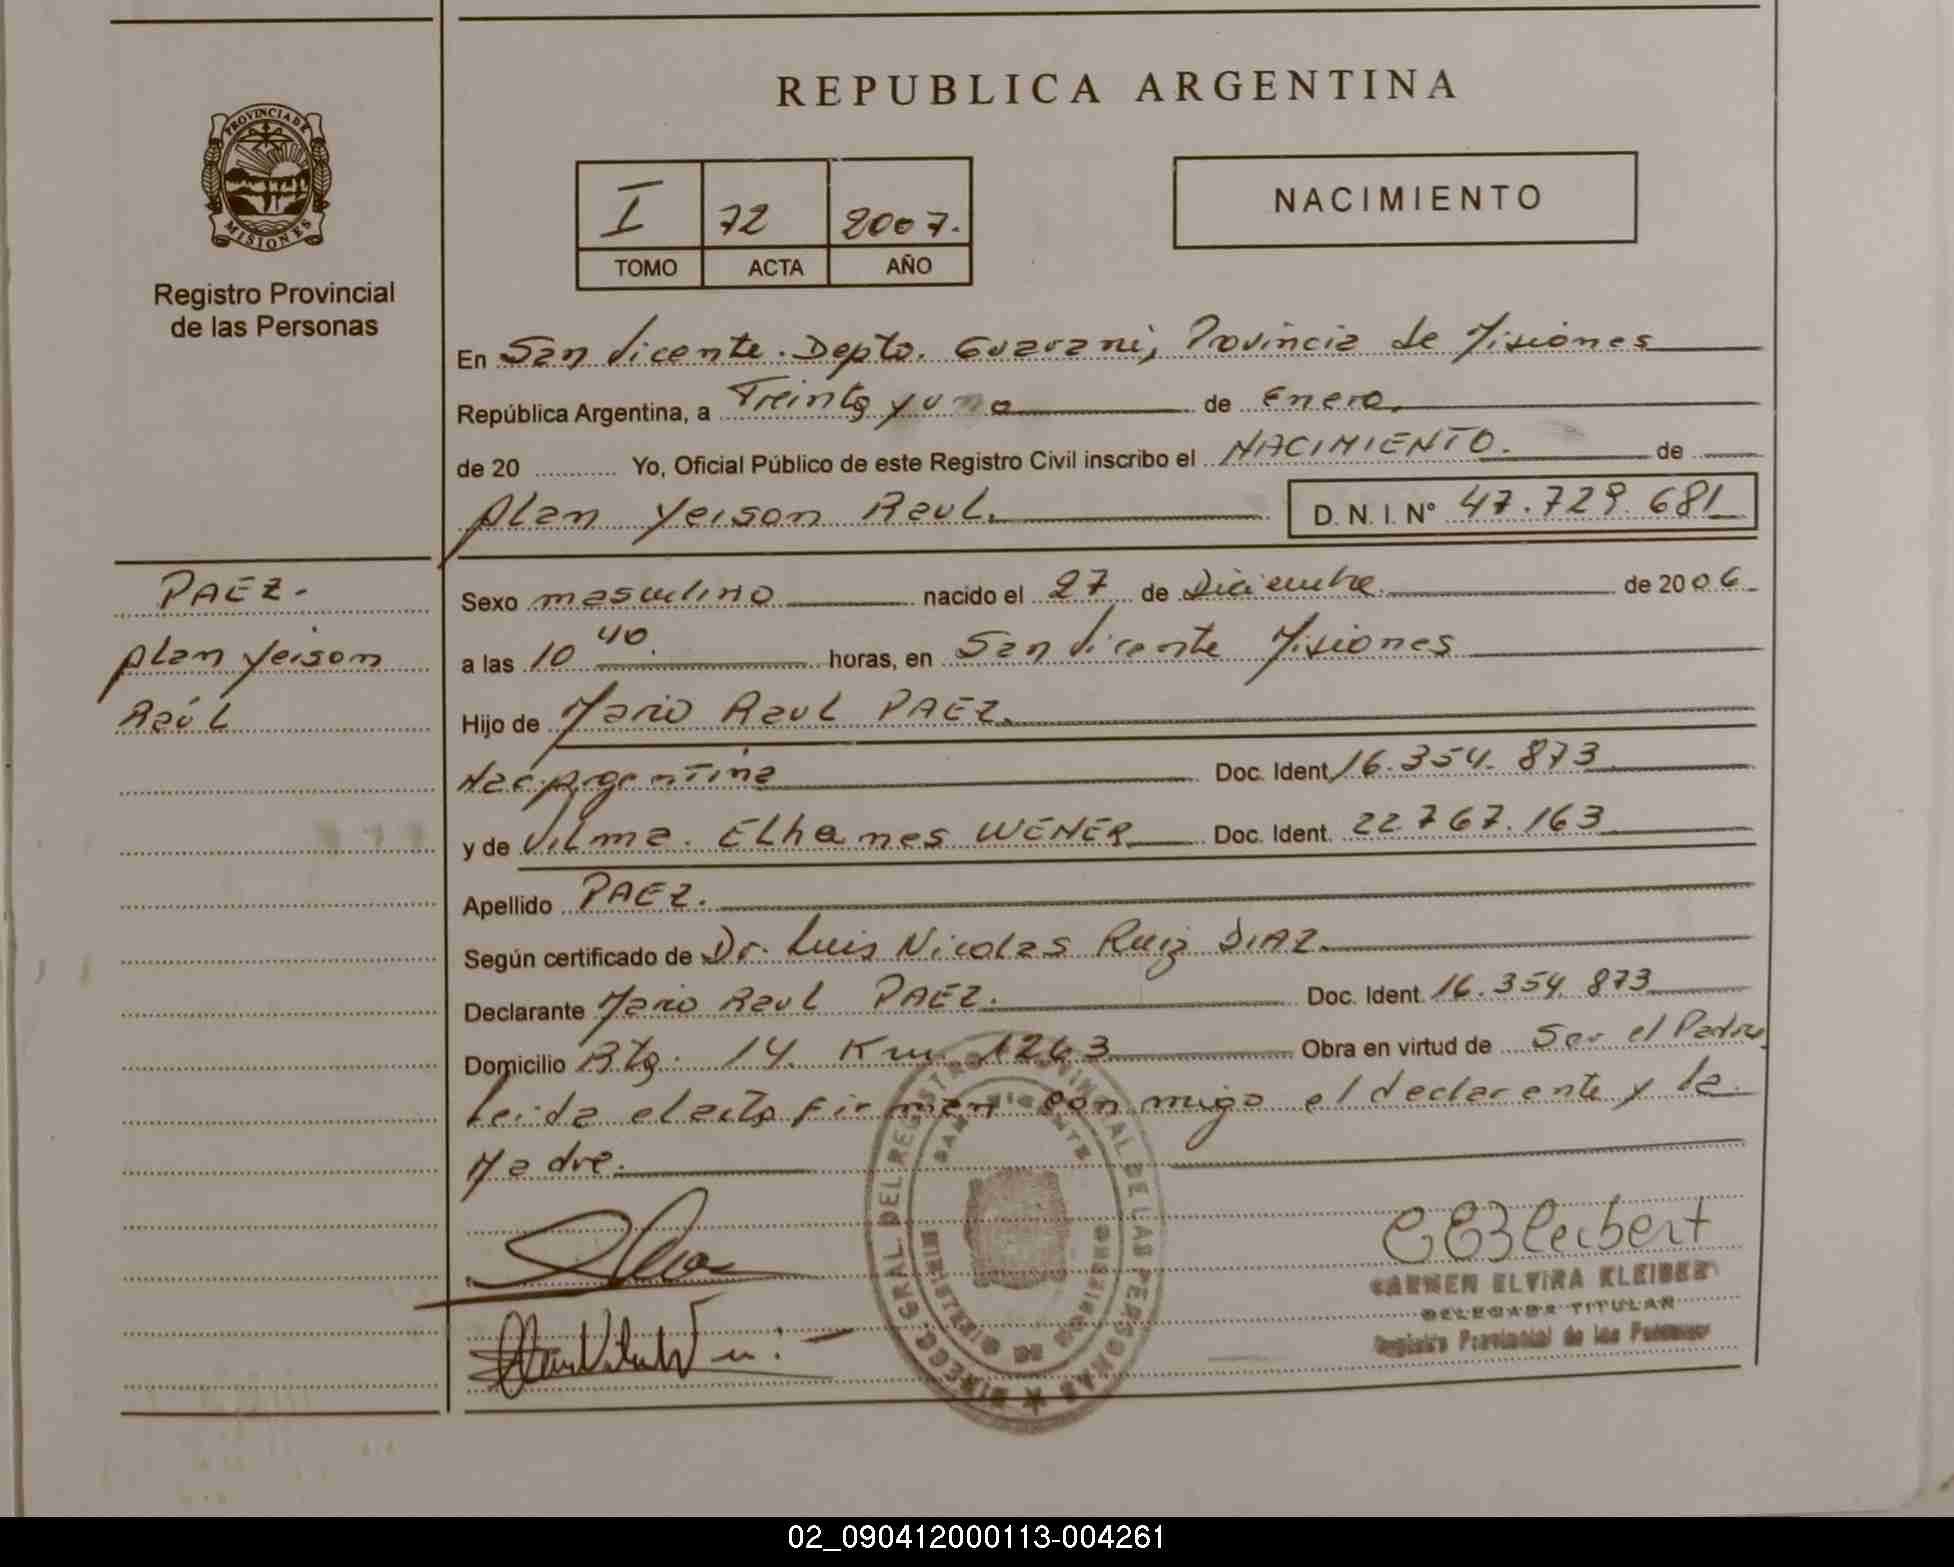 REPUBLICA ARGENTINA
PROVINCIA DE
MISIONES
Registro Provincial
de las Personas
I 72 2007.
TOMO ACTA AÑO
NACIMIENTO
En San Vicente. Depto. Guarani, Provincia de Misiones
República Argentina, a Treinta y uno de Enero.
de 20 Yo, Oficial Público de este Registro Civil inscribo el NACIMIENTO. de
Alan Yeison Raul. D. N. I. N° 47.729.681
PAEZ.
Alan Yeison
Raúl
Sexo masculino nacido el 27 de Diciembre. de 2006
a las 10 40. horas, en San Vicente Misiones
Hijo de Mario Raul PAEZ.
Nac. Argentina Doc. Ident. 16.354.873
y de Vilma. Elhanes WENER Doc. Ident. 22.767.163
Apellido PAEZ.
Según certificado de Dr. Luis Nicolas Ruiz DIAZ.
Declarante Mario Raul PAEZ. Doc. Ident. 16.354.873
Domicilio Rta. 14. Km 1263 Obra en virtud de Ser el Padre
Leida el acta firman conmigo el declarante y la
Madre.
DIRECC. GRAL. DEL REGISTRO PROVINCIAL DE LAS PERSONAS
SAN VICENTE
MINISTERIO DE GOBIERNO
CARMEN ELVIRA KLEIBER
DELEGADA TITULAR
Registro Provincial de las Personas
02_090412000113-004261